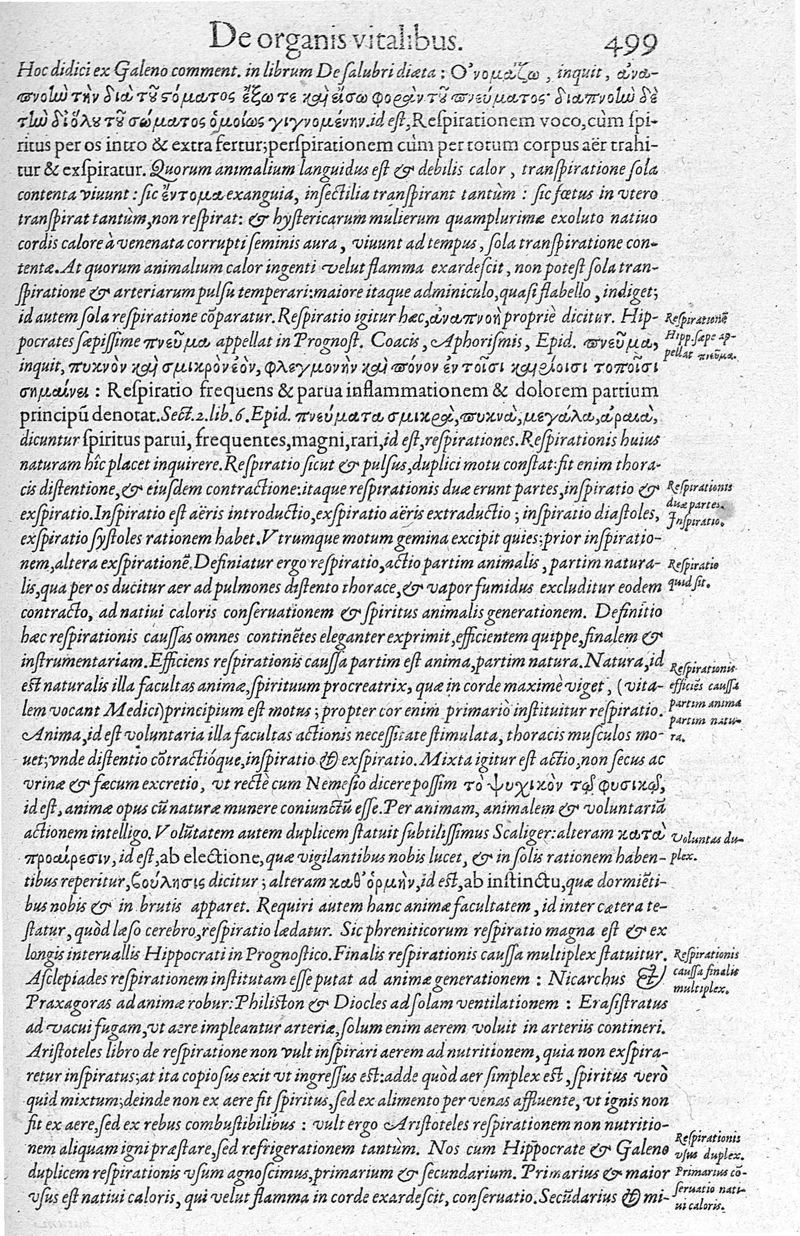 De organis vitalibus.
499
Hoc didici ex Galeno comment. in librum De salubri diæta: Ὀνομάζω, inquit, ἀνα-
πνοὴν τὴν διὰ τοῦ στόματος ἔξω τε καὶ εἴσω φορὰν τοῦ πνεύματος· διαπνοὴν δὲ
τὴν δι' ὅλου τοῦ σώματος ὁμοίως γιγνομένην. id est, Respirationem voco, cùm spi-
ritus per os intro & extra fertur; perspirationem cùm per totum corpus aër trahi-
tur & exspiratur. Quorum animalium languidus est & debilis calor, transpiratione sola
contenta viuunt: sic ἔντομα exanguia, insectilia transpirant tantùm: sic fœtus in vtero
transpirat tantùm, non respirat: & hystericarum mulierum quamplurimæ exoluto natiuo
cordis calore à venenata corrupti seminis aura, viuunt ad tempus, sola transpiratione con-
tentæ. At quorum animalium calor ingenti velut flamma exardescit, non potest sola tran-
spiratione & arteriarum pulsu temperari: maiore itaque adminiculo, quasi flabello, indiget;
id autem sola respiratione cõparatur. Respiratio igitur hæc, ἀναπνοὴ propriè dicitur. Hip-
pocrates sæpissime πνεῦμα appellat in Prognost. Coacis, Aphorismis, Epid. πνεῦμα,
inquit, πυκνὸν καὶ σμικρὸν ἐὸν, φλεγμονὴν καὶ πόνον ἐν τοῖσι καιρίοισι τοποῖσι
σημαίνει: Respiratio frequens & parua inflammationem & dolorem partium
principũ denotat. Sect. 2. lib. 6. Epid. πνεύματα σμικρὰ, πυκνὰ, μεγάλα, ἀραιὰ,
dicuntur spiritus parui, frequentes, magni, rari, id est, respirationes. Respirationis huius
naturam hîc placet inquirere. Respiratio sicut & pulsus, duplici motu constat: fit enim thora-
cis distentione, & eiusdem contractione: itaque respirationis duæ erunt partes, inspiratio &
exspiratio. Inspiratio est aëris introductio, exspiratio aëris extraductio; inspiratio diastoles,
exspiratio systoles rationem habet. Vtrumque motum gemina excipit quies: prior inspiratio-
nem, altera exspirationẽ. Definiatur ergo respiratio, actio partim animalis, partim natura-
lis, qua per os ducitur aer ad pulmones distento thorace, & vapor fumidus excluditur eodem
contracto, ad natiui caloris conseruationem & spiritus animalis generationem. Definitio
hæc respirationis caussas omnes continẽtes eleganter exprimit, efficientem quippe, finalem &
instrumentariam. Efficiens respirationis caussa partim est anima, partim natura. Natura, id
est naturalis illa facultas animæ, spirituum procreatrix, quæ in corde maximè viget, (vita-
lem vocant Medici) principium est motus; propter cor enim primariò instituitur respiratio.
Anima, id est voluntaria illa facultas actionis necessitate stimulata, thoracis musculos mo-
uet; vnde distentio cõtractióque, inspiratio & exspiratio. Mixta igitur est actio, non secus ac
vrinæ & fæcum excretio, vt rectè cum Nemesio dicere possim τὸ ψυχικὸν τῷ φυσικῷ,
id est, animæ opus cũ naturæ munere coniunctũ esse. Per animam, animalem & voluntariã
actionem intelligo. Volũtatem autem duplicem statuit subtilissimus Scaliger: alteram κατὰ
προαίρεσιν, id est, ab electione, quæ vigilantibus nobis lucet, & in solis rationem haben-
tibus reperitur, βούλησις dicitur; alteram καθ' ὁρμὴν, id est, ab instinctu, quæ dormiẽti-
bus nobis & in brutis apparet. Requiri autem hanc animæ facultatem, id inter cætera te-
statur, quòd læso cerebro, respiratio lædatur. Sic phreniticorum respiratio magna est & ex
longis interuallis Hippocrati in Prognostico. Finalis respirationis caussa multiplex statuitur.
Asclepiades respirationem institutam esse putat ad animæ generationem: Nicarchus &
Praxagoras ad animæ robur: Philiston & Diocles ad solam ventilationem: Erasistratus
ad vacui fugam, vt aere impleantur arteriæ, solum enim aerem voluit in arteriis contineri.
Aristoteles libro de respiratione non vult inspirari aerem ad nutritionem, quia non exspira-
retur inspiratus; at ita copiosus exit vt ingressus est: adde quòd aer simplex est, spiritus verò
quid mixtum; deinde non ex aere fit spiritus, sed ex alimento per venas affluente, vt ignis non
fit ex aere, sed ex rebus combustibilibus: vult ergo Aristoteles respirationem non nutritio-
nem aliquam igni præstare, sed refrigerationem tantùm. Nos cum Hippocrate & Galeno
duplicem respirationis vsum agnoscimus, primarium & secundarium. Primarius & maior
vsus est natiui caloris, qui velut flamma in corde exardescit, conseruatio. Secũdarius & mi-
Respirationẽ
Hipp. sæpe ap-
pellat πνεῦμα.
Respirationis
duæ partes.
Inspiratio.
Respiratio
quid sit.
Respirationis
efficiẽs caussa
partim anima
partim natu-
ra.
Voluntas du-
plex.
Respirationis
caussa finalis
multiplex.
Respirationis
vsus duplex.
Primarius cõ-
seruatio nati-
ui caloris.